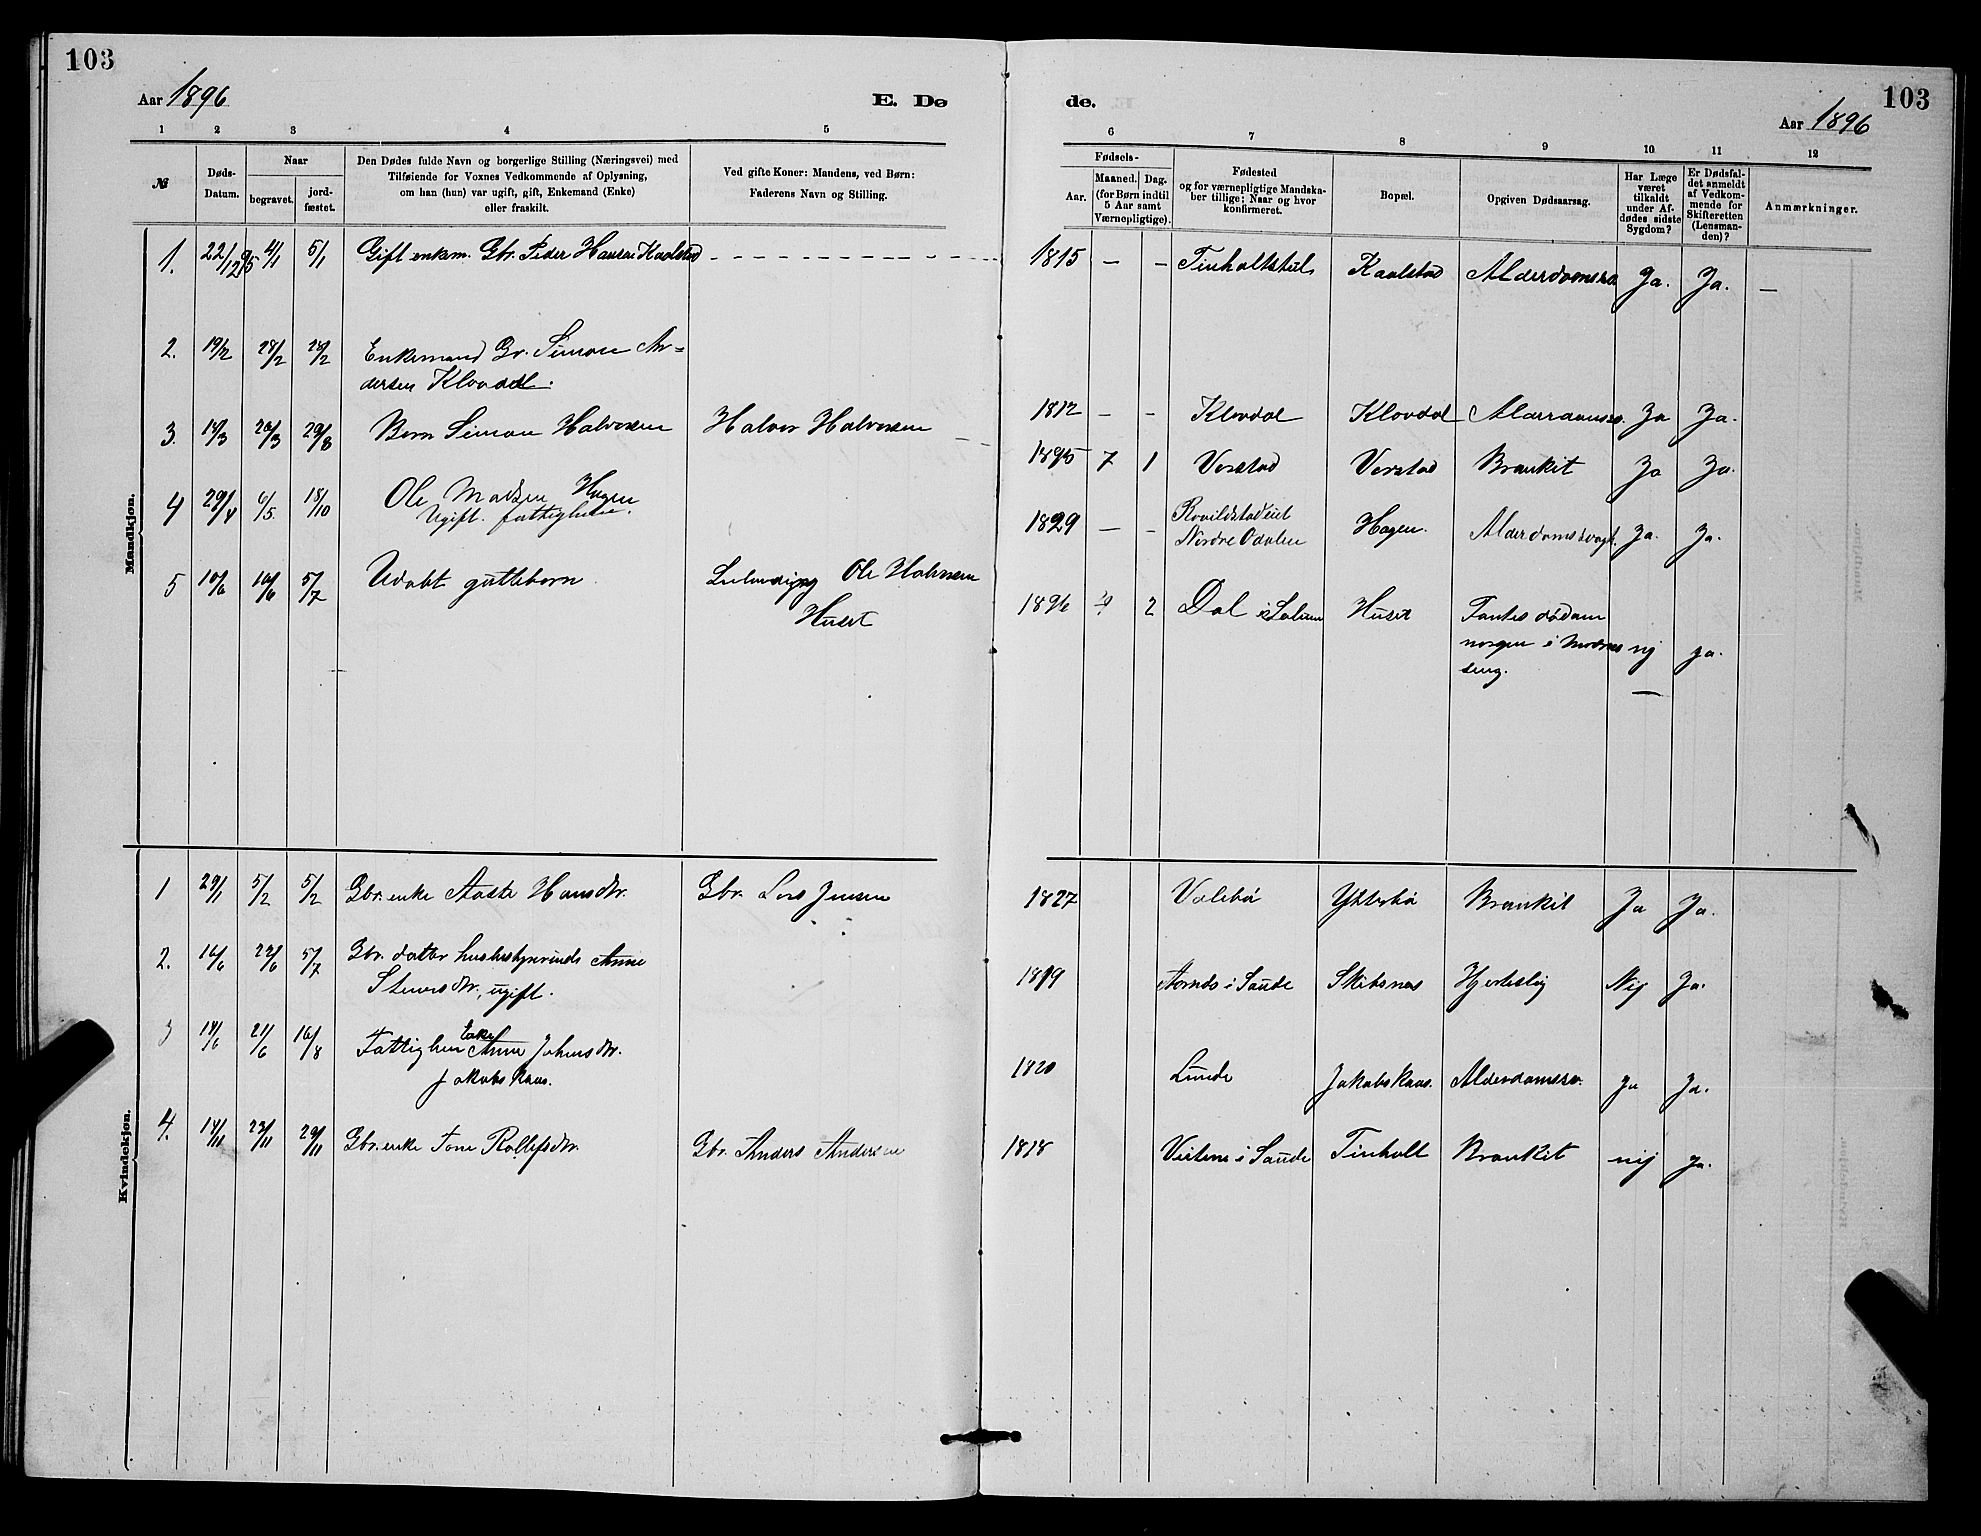 103
Aar 1896
E. Dø
1 2 3 4 5
№
Døds-
Datum.
Naar
begravet.
jord-
fæstet.
Den Dødes fulde Navn og borgerlige Stilling (Næringsvei) med
Tilføiende for Voxnes Vedkommende af Oplysning,
om han (hun) var ugift, gift, Enkemand (Enke)
eller fraskilt.
Ved gifte Koner: Mandens, ved Børn:
Faderens Navn og Stilling.
Mandkjøn.
1. 22/12 95 4/1 5/1 Gift Gbr. Peder Hansen Kaalstad
2. 19/2 28/2 28/2 Enkemand Gr. Simon An=
dersen Klovdal.
3. 14/3 20/3 29/8 Barn Simon Halvorsen Halvor Halvorsen
4 29/4 6/5. 18/10 Ole Madsen Hagen
Ugift. fattighen.
5 10/6 16/6 5/7 Udøbt guttebarn Ole Halvorsen
Huset
Kvindekjøn.
1 29/1 5/2 5/2 Gbr. enke Aaste Hansdtr. Gbr. Lars Jensen
2. 16/6 22/6 5/7 Gbr. datter husbestyrerinde Anne
Stenersdtr., ugift.
3 14/6 21/6 16/8 Fattighen Enke Anne Johnsdtr.
Jakobskaas.
4. 14/11 23/11 29/11 Gbr. enke Tone Rollefsdtr. Gbr. Anders Andersen
de.
103
Aar 1896
6 7 8 9 10 11 12
Fødsels-
Aar.
Maaned.
Dag.
(for Børn indtil
5 Aar samt
Værnepligtige).
Fødested
og for værnepligtige Mandska-
ber tillige: Naar og hvor
konfirmeret.
Bopæl.
Opgiven Dødsaarsag.
Har Læge
været
tilkaldt
under Af-
dødes sidste
Sygdom?
Er Dødsfal-
det anmeldt
af Vedkom-
mende for
Skifteretten
(Lensman-
den)?
Anmærkninger.
1815 — — Tinholtstul Kaalstad Alderdomssv Ja. Ja. —
1812 - - Klovdal Klovdal Alderdomssv. Ja Ja.
1895 7 1 Verstad Verstad Brankit Ja Ja.
1829 — - Hagen. Alderdomssvagh. Ja. Ja.
Nordre Odalen
1896 2 Dal i Solum Huset Fantes død om
morgen i moderens nej ja.
seng.
1827 Valebø Ytterbø Brankit Ja Ja.
1819 Aarnæs i Saude Skibsnæs Hjerteslag Nej Ja.
1820 Lunde Jakobskaas. Alderdomssv. Ja Ja.
1818 i Saude Tinholt Brankit nej ja.